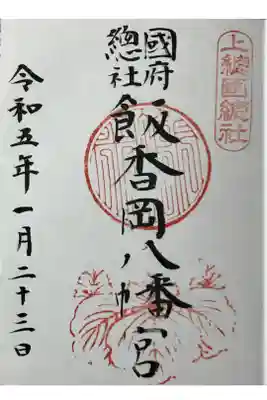 上總國總社
國府
總社
飯香岡八幡宮
令和五年一月二十三日